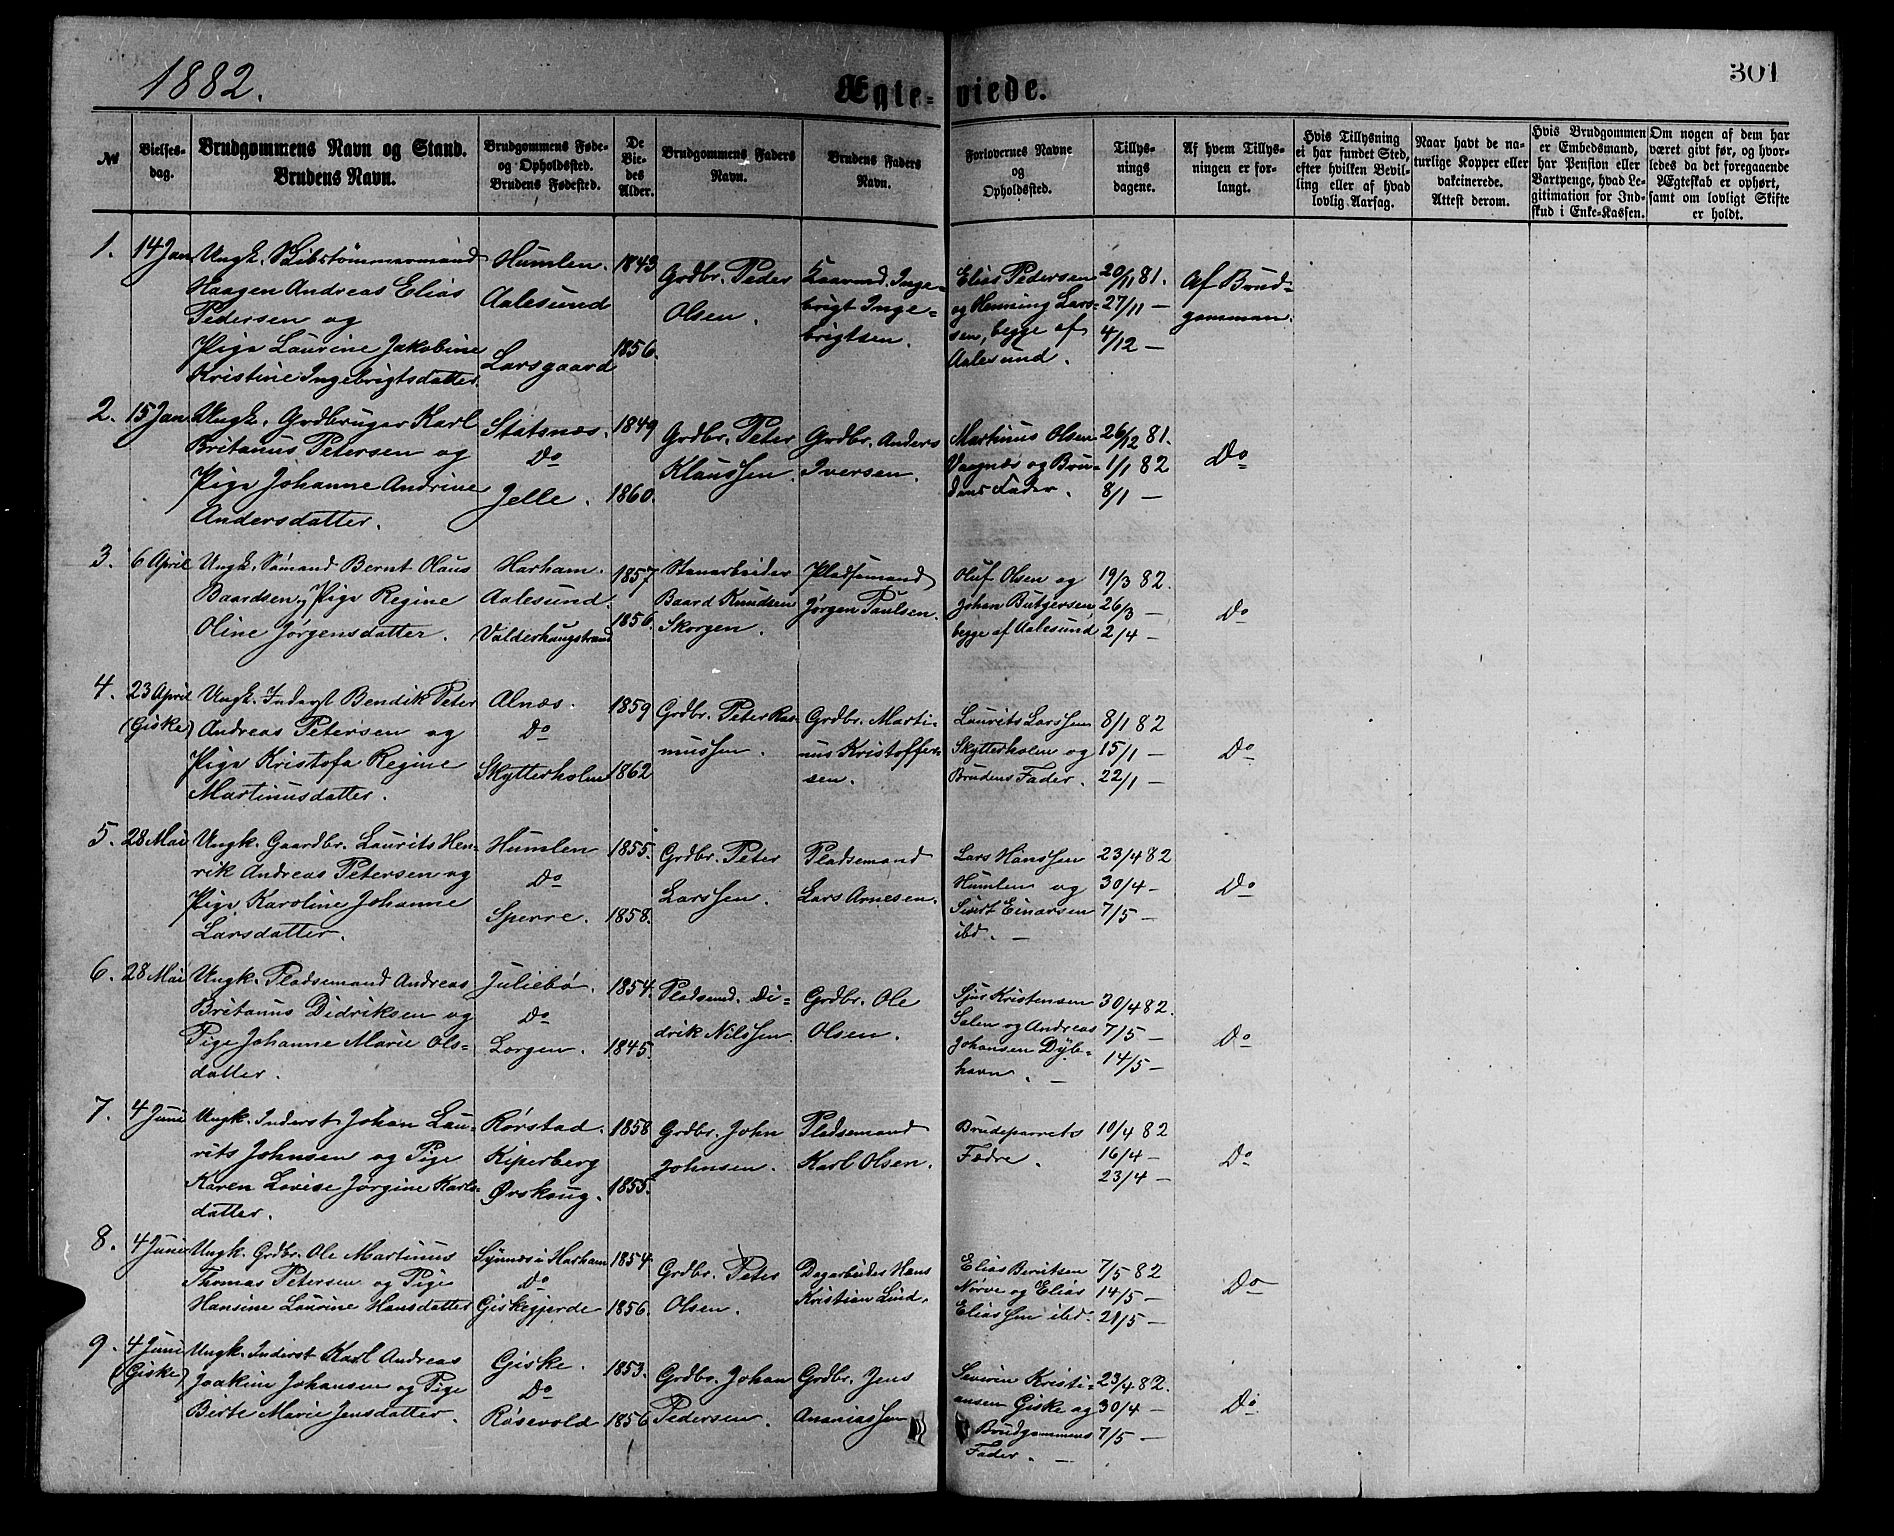 1882.
Ægte-viede.
301
№
Vielses-
dag.
Brudgommens Navn og Stand.
Brudens Navn.
Brudgommens Føde-
og Opholdssted.
Brudens Fødested.
De
Vie-
des
Alder.
Brudgommens Faders
Navn.
Brudens Faders
Navn.
Forlovernes Navne
og
Opholdssted.
Tillys-
nings
dagene.
Af hvem Tillys-
ningen er for-
langt.
Hvis Tillysning
ei har fundet Sted,
efter hvilken Bevil-
ling eller af hvad
lovlig Aarsag.
Naar havt de na-
turlige Kopper eller
vakcinerede.
Attest derom.
Hvis Brudgommen
er Embedsmand,
har Pension eller
Vartpenge, hvad Le-
gitimation for Ind-
skud i Enke-Kassen.
Om nogen af dem har
været givt før, og hvor-
ledes da det foregaaende
Ægteskab er ophørt,
samt om lovligt Skifte
er holdt.
1.
14 Jan
Ungk. Skibstømmermand
Haagen Andreas Elias
Pedersen og
Pige Laurine Jakobine
Kristine Ingebrigtsdatter.
Humlen.
Aalesund
Larsgaard
1843
1856.
Grdbr. Peder
Olsen.
Inge-
brigt Inge-
brigtsen.
Elias Pedersen
og Henning Lars-
sen, begge af
Aalesund.
20/11 81.
27/11 —
4/12 —
Af Brud-
gommen.
2.
15 Jan
Ungk. Grdbruger Karl
Britanus Petersen og
Pige Johanne Andrine
Andersdatter.
Statsnæs.
Do
Jelle.
1849
1860.
Grdbr. Peter
Klaussen.
Grdbr. Anders
Iversen.
Martinus Olsen
Vaagnæs og Bru-
dens Fader.
26/12 81.
1/1 82
8/1 —
Do
3.
6 April
Ungk. Sømand Bernt Olaus
Baardsen, Pige Regine
Oline Jørgensdatter.
Harham.
Aalesund.
Valderhaugstrand
1857
1856.
Stenarbeider
Baard Knudsen
Skorgen.
Pladsemand
Jørgen Paulsen.
Oluf Olsen og
Johan Butgersen
begge af Aalesund
19/3 82.
26/3 —
2/4 —
Do
4.
23 April
(Giske)
Ungk. Inderst Bendik Peter
Andreas Petersen og
Pige Kristofa Regine
Martinusdatter.
Alnæs.
Do
Skytterholm
1859
1862
Grdbr. Peter Ras-
mussen.
Grdbr. Marti-
nus Kristoffer-
sen.
Laurits Larssen
Skytterholm og
Brudens Fader.
8/1 82
15/1 —
22/1 —
Do
5.
28 Mai
Ungk. Gaardbr. Laurits Hen-
rik Andreas Petersen og
Pige Karoline Johanne
Larsdatter.
Humlen
Do
Sperre.
1855.
1858.
Grdbr. Peter
Larssen.
Pladsemand
Lars Arnesen.
Lars Hanssen
Humlen og
Sivert Einarsen
ibd. —
23/4 82
30/4 —
7/5 —
Do
6.
28 Mai
Ungk. Pladsemand Andreas
Britanus Didriksen og
Pige Johanne Marie Ols-
datter.
Juliebø.
Do
Lorgen.
1854.
1845.
Pladsmd. Di-
drik Nilssen.
Grdbr. Ole
Olsen.
Sjur Kristensen
Salen og Andreas
Johansen Dyb-
havn. —
30/4 82.
7/5 —
14/5 —
Do
7.
4 Juni
Ungk. Inderst Johan Lau-
rits Johnsen og Pige
Karen Lovise Jørgine Karls-
datter.
Rørstad.
Kiperberg
Ørskoug.
1858
1855.
Grdbr. John
Johnsen.
Pladsemand
Karl Olsen.
Brudeparrets
Fædre.
10/4 82
16/4 —
23/4 —
Do
8.
4 Juni
Ungk. Grdbr. Ole Martinus
Thomas Petersen og Pige
Hansine Laurine Hansdatter
Synnæs i Harham
Do
Giskegjerde
1854.
1856.
Grdbr. Peter
Olsen.
Dagarbeider Hans
Kristian Lind.
Elias Berntsen
Nørve og Elias
Eliassen ibd.
7/5 82
14/5 —
21/5 —
Do
9.
4 Juni
(Giske)
Ungk. Inderst Karl Andreas
Joakim Johansen og Pige
Birte Marie Jensdatter.
Giske.
Do
Røsevold
1853.
1856
Grdbr. Johan
Pedersen.
Grdbr. Jens
Ananiassen
Severin Kristi-
ansen Giske og
Brudgommens
Fader. —
23/4 82.
30/4 —
7/5 —
Do